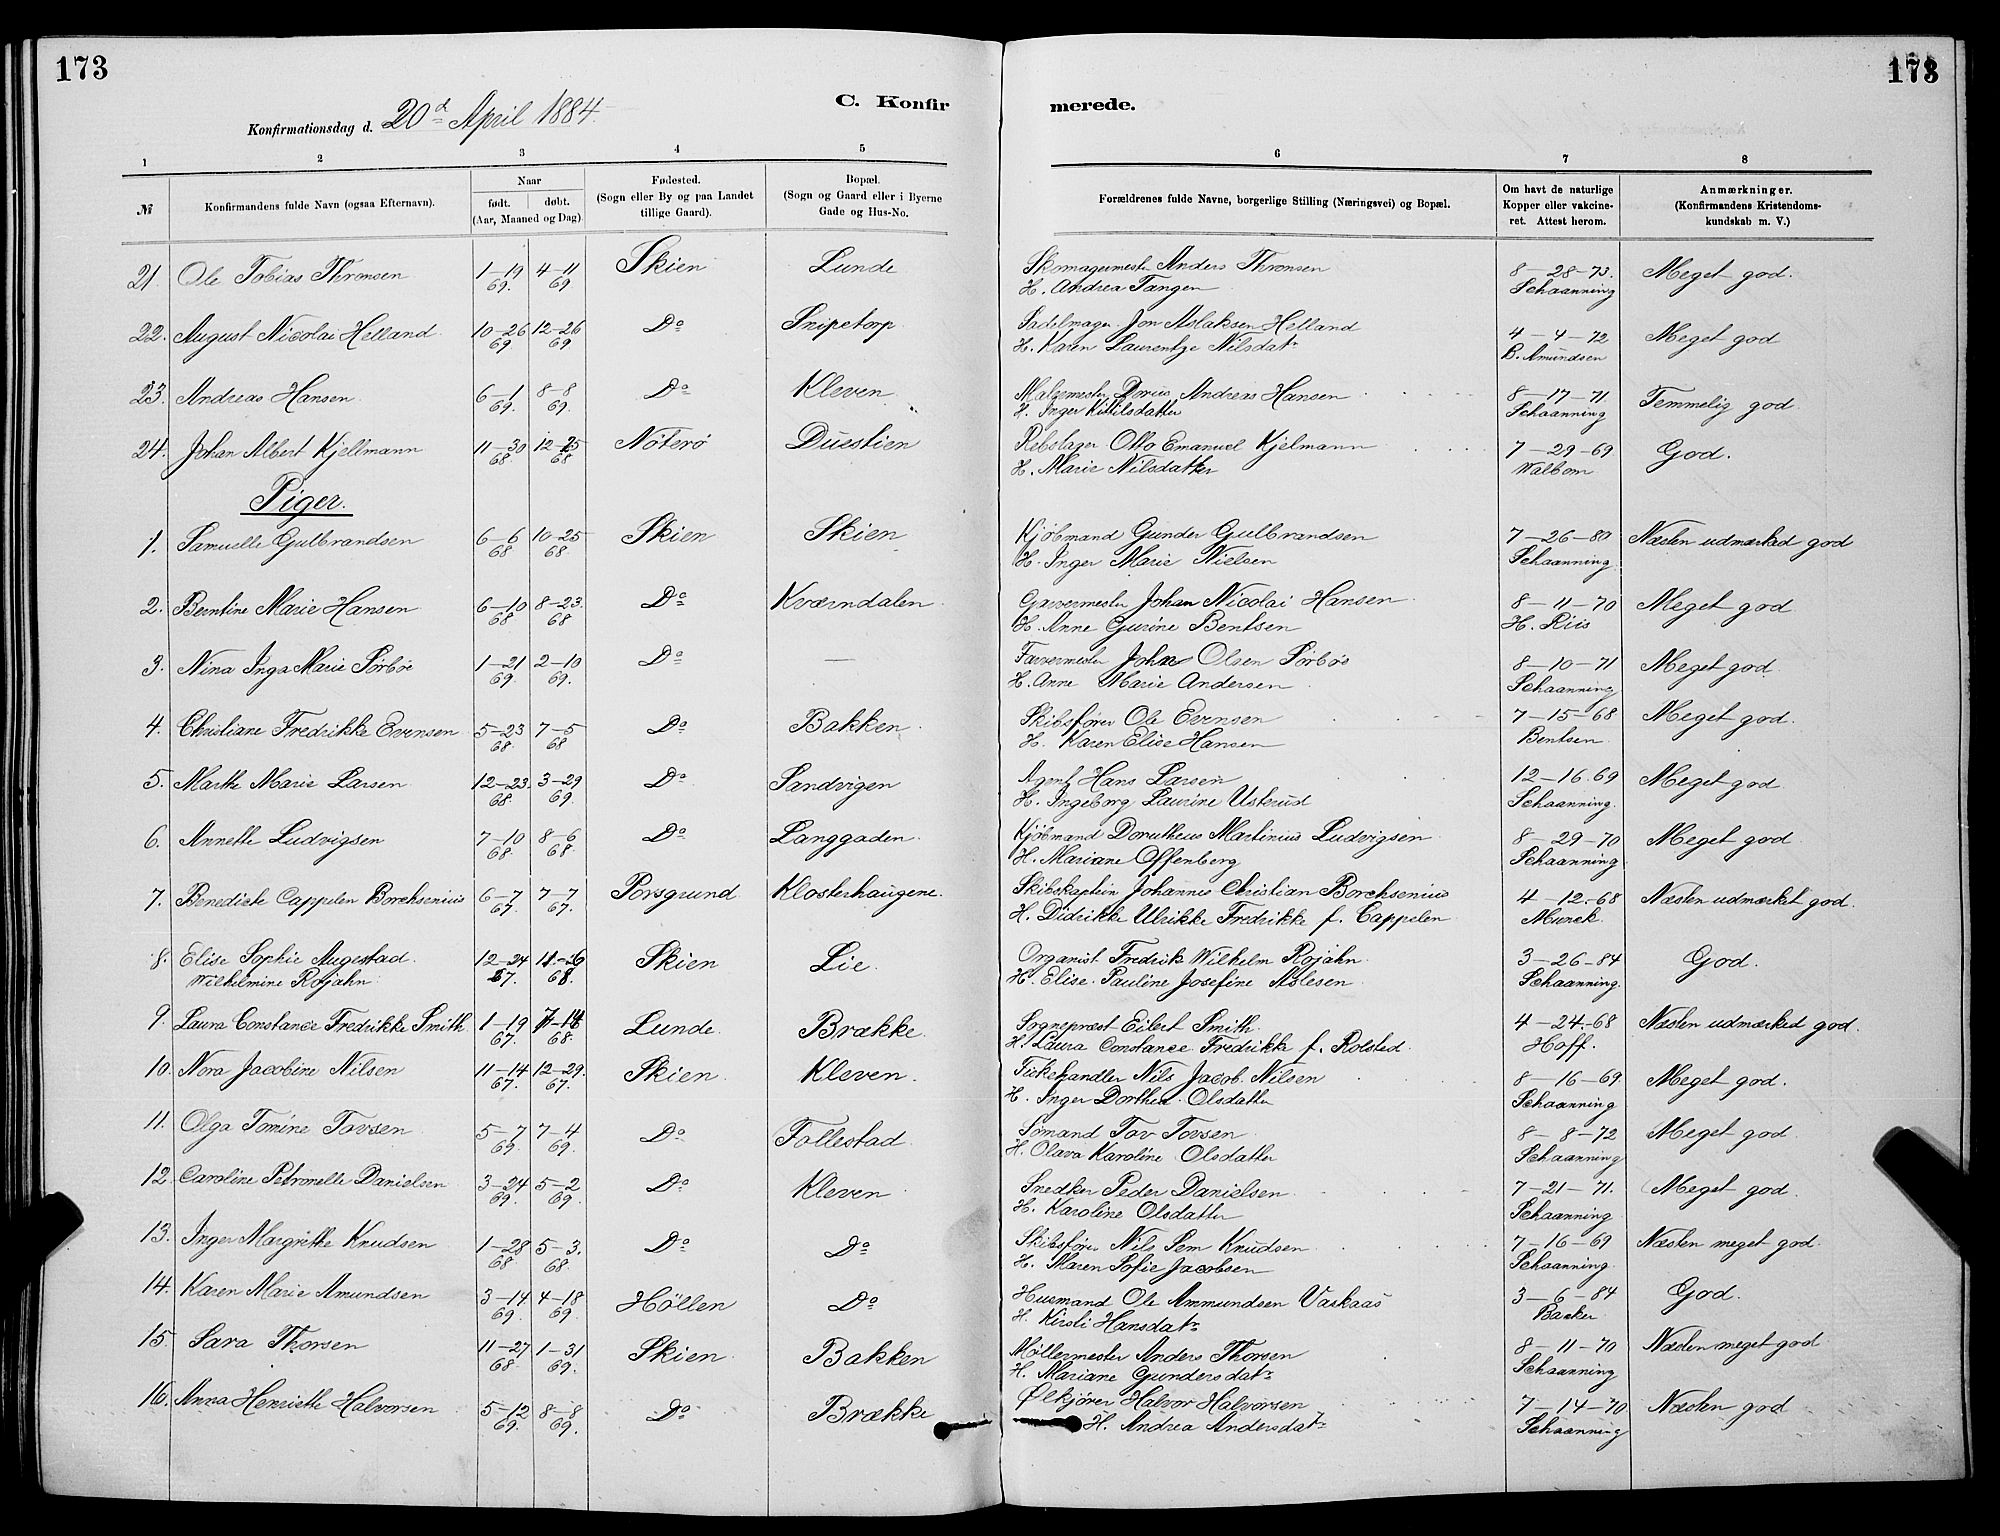 173
173
C. Konfir
merede.
Konfirmationsdag d. 20d April 1884.
1 2 3 4 5 6 7 8
№
Konfirmandens fulde Navn (ogsaa Efternavn).
Naar
født. døbt.
(Aar, Maaned og Dag)
Fødested.
(Sogn eller By og paa Landet
tillige Gaard).
Bopæl.
(Sogn og Gaard eller i Byerne
Gade og Hus-No.
Forældrenes fulde Navne, borgerlige Stilling (Næringsvei) og Bopæl.
Om havt de naturlige
Kopper eller vakcine-
ret. Attest herom.
Anmærkninger.
(Konfirmandens Kristendoms-
kundskab m. V.)
21. Ole Tobias Thronsen 1–19 4–11 Skien Lunde Skomagermester Anders Thronsen 8–28–73. Meget god.
69. 69 H. Andrea Tangen Schaanning
22. August Nicolai Helland 10–26 12–26 Do Snipetorp Sadelmager Jon Aslaksen Helland 4–4–72 Meget god
69. 69 H. Karen Laurentze Nilsdatr B. Amundsen
23. Andreas Hansen 6–1 8–8 Do Kleven Malermester Andreas Hansen 8–17–71 Temmelig god.
69. 69. H. Inger Kittilsdatter Schaanning
24. Johan Albert Kjellmann 11–30 12–25 Nøterø Duestien Rebslager Otto Emanuel Kjelmann 7–29–69 God.
68. 68 H. Marie Nilsdatter Walbom
Piger.
1. Samuelle Gulbrandsen 6–6 10–25 Skien Skien Kjøbmand Gunder Gulbrandsen 7–26–80 Næsten udmærked god
68 68 H. Inger Marie Nielsen Schaanning
2. Berntine Marie Hansen 6–10 8–23. Do Kværndalen Garvermester Johan Nicolai Hansen 8–11–70 Meget god
68 68 H. Anne Gurine Bentsen H. Riis
3. Nina Inga Marie Sørbøe 1–21 2–10 Do — Farvermester John Olsen Sørbøe 8–10–71 Meget god.
69. 69. H. Anne Marie Andersen Schaanning
4. Christiane Fredrikke Evensen 5–23 7–5 Do Bakken Skibsfører Ole Evensen 7–15–68 Meget god.
68. 68 H. Karen Elise Hansen Bentsen
5. Marthe Marie Larsen 12–23. 3–29 Do Sandvigen Agent Hans Larsen 12–16.69 Meget god
68. 69. H. Ingeborg Laurine Usterud Schaanning.
6. Annette Ludvigsen 7–10 8–6 Do Langgaden Kjøbmand Dorutheus Martinius Ludvigsen 8–29–70 Meget god
68. 68. H. Mariane Offenberg Schaanning
7. Benedicte Cappelen Borchsenius 6–7 7–7 Porsgrund Klosterhaugene. Skibskaptein Johannes Christian Borchsenius 4–12–68 Næsten udmærket god.
67. 67. H. Didrikke Ulrikke Fredrikke f. Cappelen Munck
8. Elise Sophie Augestad 12–24 11–26 Skien Lie. Organist Fredrik Wilhelm Rojahn 3–26–84 God.
Wilhelmine Rojahn 67. 68. H. Elise Pauline Josefine Aslesen Schaanning.
9. Laura Constance Fredrikke Smith 1–19 7–14 Lunde. Brække. Sognepræst Eilert Smith 4–24.–68 Næsten udmærked god.
67. 68. H. Laura Constance Fredrikke f. Rolsted Hoff.
10. Nora Jacobine Nilsen 11–14 12–29. Skien Kleven. Fiskehandler Nils Jacob Nilsen 8–16–69 Meget god.
67. 67. H. Inger Dorthea Olsdatter Schaanning
11. Olga Tomine Tovsen 5–7 7–4 Do Follestad Sømand Tov Tovsen 8–8–72 Meget god
69. 69. H. Olava Karoline Olsdatter Schaanning
12. Caroline Petronelle Danielsen 3–24 5–2 Do Kleven Snedker Peder Danielsen 7–21–71. Meget god.
69. 69. H. Karoline Olsdatter Schaanning
13. Inger Margrethe Knudsen 1–28 5–3. Do Do Skibsfører Nils Sem Knudsen 7–16–69 Næsten meget god.
68 68. H. Maren Sofie Jacobsen Schaanning.
14. Karen Marie Amundsen 3–14 4–18 Höllen Do Husmand Ole Ammundsen Vaskaas 3–6–84 God.
69. 69. H. Kirsti Hansdatr Backer
15. Sara Thorsen 11–27 1–31 Skien Bakken Møllermester Anders Thorsen 8–11–70 Næsten meget god
68 69. H. Mariane Gundersdatr Schaanning
16. Anna Henriette Halvorsen 5–12 8–8 Do Brække Ølkjører Halvor Halvorsen 7–14–70 Næsten god
69. 69. H. Andrea Andersdatr Schaanning